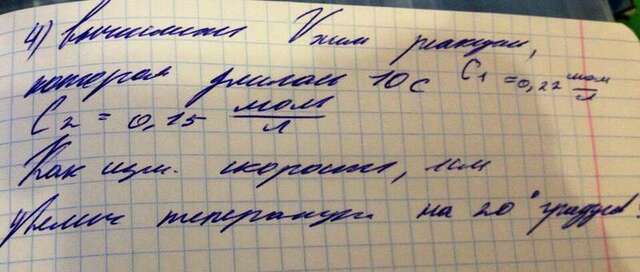 4) Вычислить V хим реакции,
которая длилась 10с C₁ = 0,22 моль/л
C₂ = 0,15 моль/л
Как изм. скорость,
увелич температур на 20° градусов